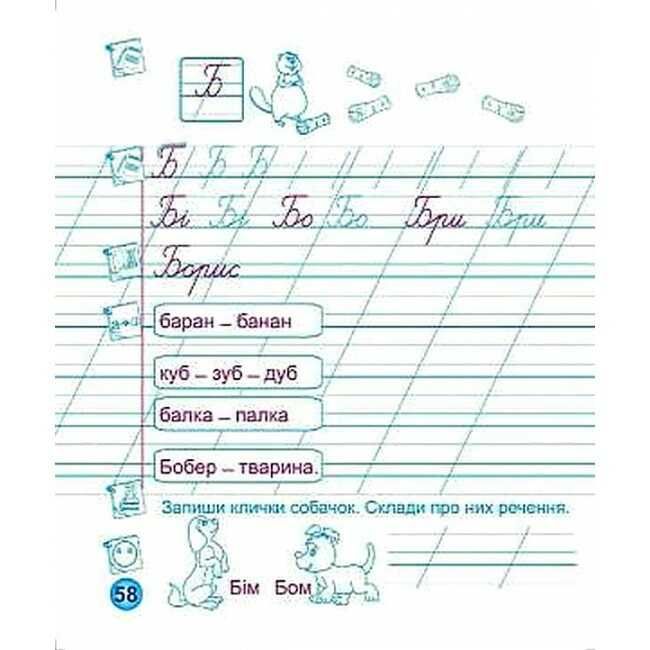 Б
Б Б Б
Бі Бі Бо Бо Бри Бри
Борис
баран – банан
куб – зуб – дуб
балка – палка
Бобер – тварина.
Запиши клички собачок. Склади про них речення.
Бім Бом
58